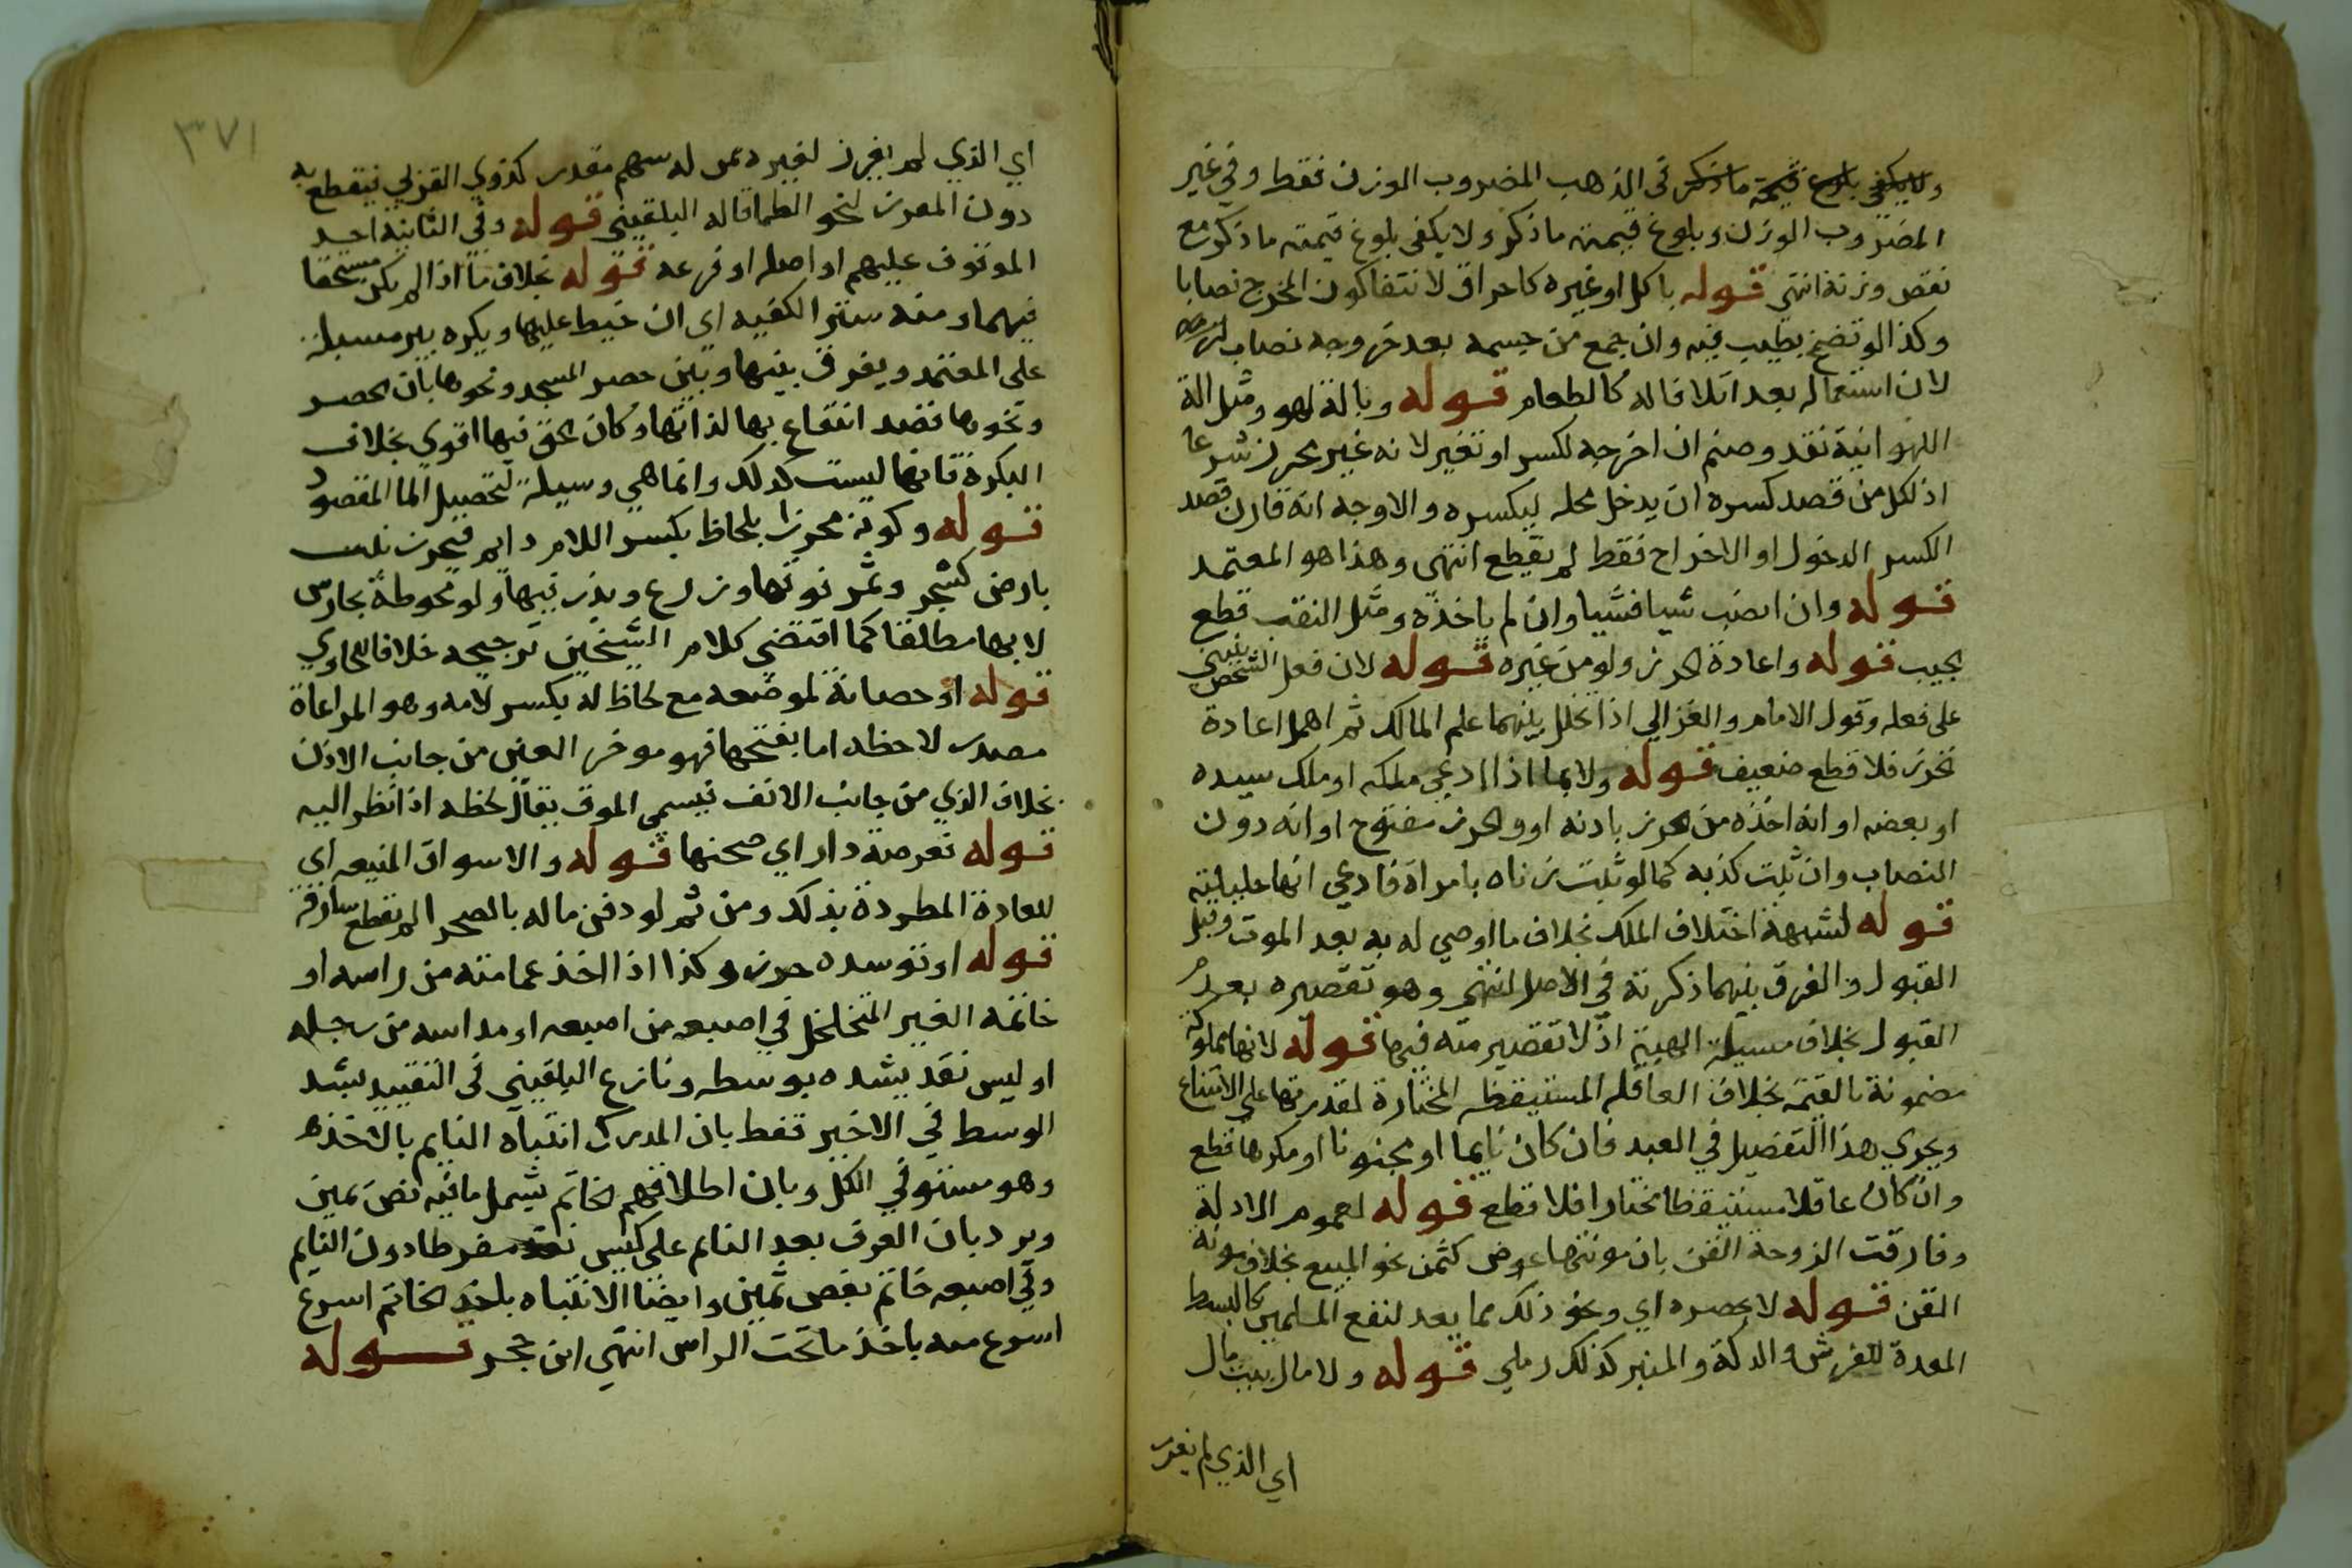 ولا يكفي بلوغ قيمة ما ذكر في الذهب المضروب الوزن فقط وفي غير
المضروب الوزن وبلوغ قيمته ما ذكر ولا يكفي بلوغ قيمته ما ذكر مع
نقص وزنه انتهى قوله باكل او غيره كاحراق لانتفا كون المخرج نصابا
وكذا لو تضمخ بطيب فيه وان جمع من جسمه بعد خروجه نصاب
لان استعماله يعد اتلافا له كالطعام قوله وبالة لهو ومثل الة
اللهو انية نقد وصنم ان اخرجه لكسر او تغير لانه غير محرز شرعا
اذ لكل من قصد كسره ان يدخل محله ليكسره والاوجه انه قارن قصد
الكسر الدخول او الاخراج فقط لم يقطع انتهى وهذا هو المعتمد
قوله وان انصب شيا فشيا وان لم ياخذه ومثل النقب قطع
الجيب قوله واعادة الحرز ولو من غيره قوله لان فعل الشخص يبني
على فعله وقول الامام والغزالي اذا تخلل بينهما علم المالك ثم اهمل اعادة
تحرز فلا قطع ضعيف قوله ولا بما اذا ادعى ملكه او ملك سيده
او بعضه او انه اخذه من الحرز باذنه او والحرز مفتوح او انه دون
النصاب وان ثبت كذبه كما لو ثبت زناه بامراة فادعى انها حليلته
قوله لشبهة اختلاف الملك بخلاف ما اوصي له به بعد الموت وقبل
القبول والفرق بينهما ذكرته في الاصل انتهى وهو تقصيره بعدم
القبول بخلاف مسيلة الهبة اذ لا تقصير منه فيها قوله لانها مملوكة
مضمونة بالقيمة بخلاف العاقله المستيقظه المختارة لقدرتها على الامتناع
ويجري هذا التفصيل في العبد فان كان نايما او مجنونا او مكرها قطع
وان كان عاقلا مستيقظا مختارا فلا قطع قوله لعموم الادلة
وفارقت الزوجة القن بان مونتها عوض كثمن نحو المبيع بخلاف مونة
القن قوله لا حصره اي ونحو ذلك مما يعد لنفع المسلمين كالبسط
المعدة للفرش والدكة والمنبر كذلك رملي قوله ولا مال بيت مال
اي الذي لم يفرز
٣٧١
اي الذي لم يفرز لغيره ممن له سهم مقدر كذوي القربى فيقطع به
دون المفرز لنحو العلما قاله البلقيني قوله وفي الثانية احد
الموقوف عليهم او اصله او فرعه قوله بخلاف ما اذا لم يكن مستحقا
فيهما ومنه ستر الكعبه اي ان خيط عليها وبكرة بير مسبلة
على المعتمد ويفرق بينها وبين حصر المسجد ونحوها بان الحصر
ونحوها قصد انتفاع بها لذاتها وكان الحق فيها اقوى بخلاف
البكرة فانها ليست كذلك وانما هي وسيلة لتحصيل الما المقصود
قوله وكونه محرزا بلحاظ بكسر اللام دايم فيحرز
بارض كشجر وثمر فوقها وزرع وبذر فيها ولو محوطة بحارس
لا بها مطلقا كما اقتضى كلام الشيخين ترجيحه خلافا للحاوي
قوله او حصانة لموضعه مع لحاظ له بكسر لامه وهو المراعاة
مصدر لاحظه اما بفتحها فهو موخر العين من جانب الاذن
بخلاف الذي من جانب الانف فيسمى الموق يقال لحظه اذا نظر اليه
قوله فعرصة دار اي صحنها قوله والاسواق المنيعه اي
للعادة المطردة بذلك ومن ثم لو دفن ماله بالصحرا لم يقطع سارقه
قوله او توسده حرز وكذا اذا اخذ عمامته من راسه او
خاتمه الغير المتخلخل في اصبعه من اصبعه او مداسه من رجله
او ليس نقد يشده بوسطه ونازع البلقيني في التقييد بشد
الوسط في الاخير فقط بان المدرك انتباه النايم بالاخذ
وهو مستو في الكل وبان اطلاقهم الخاتم يشمل ما فيه فص ثمين
ويرد بان العرف يعد النايم على كيس نقد مفرطا دون النايم
وفي اصبعه خاتم بفص ثمين وايضا الانتباه باخذ الخاتم اسرع
اسرع منه باخذ ما تحت الراس انتهى ابن حجر قوله